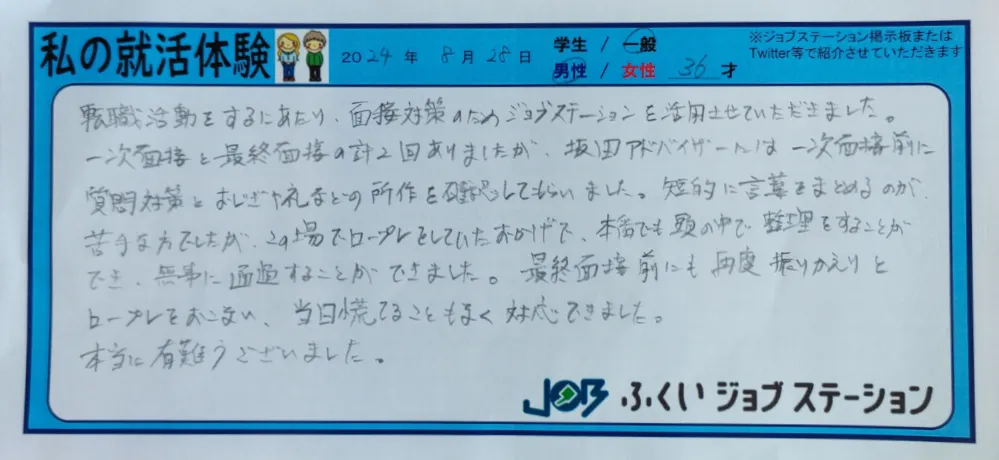 私の就活体験
2024年 8月 28日
学生 / 一般
男性 / 女性 36才
※ジョブステーション掲示板または
Twitter等で紹介させていただきます
転職活動をするにあたり、面接対策のためジョブステーションを活用させていただきました。
一次面接と最終面接の計2回ありましたが、坂田アドバイザーには一次面接前に
質問対策とおじぎや礼などの所作を確認してもらいました。短的に言葉をまとめるのが
苦手な方でしたが、この場でロープレをしていたおかげで、本番でも頭の中で整理をすることが
でき、無事に通過することができました。最終面接前にも再度振りかえりと
ロープレをおこない、当日慌てることもなく対応できました。
本当に有難うございました。
JOB ふくいジョブステーション